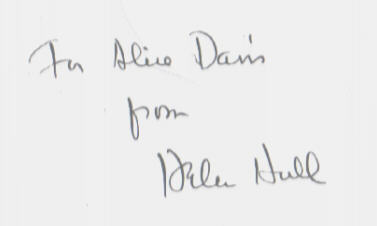 For Alice Davis
from
Helen Hull